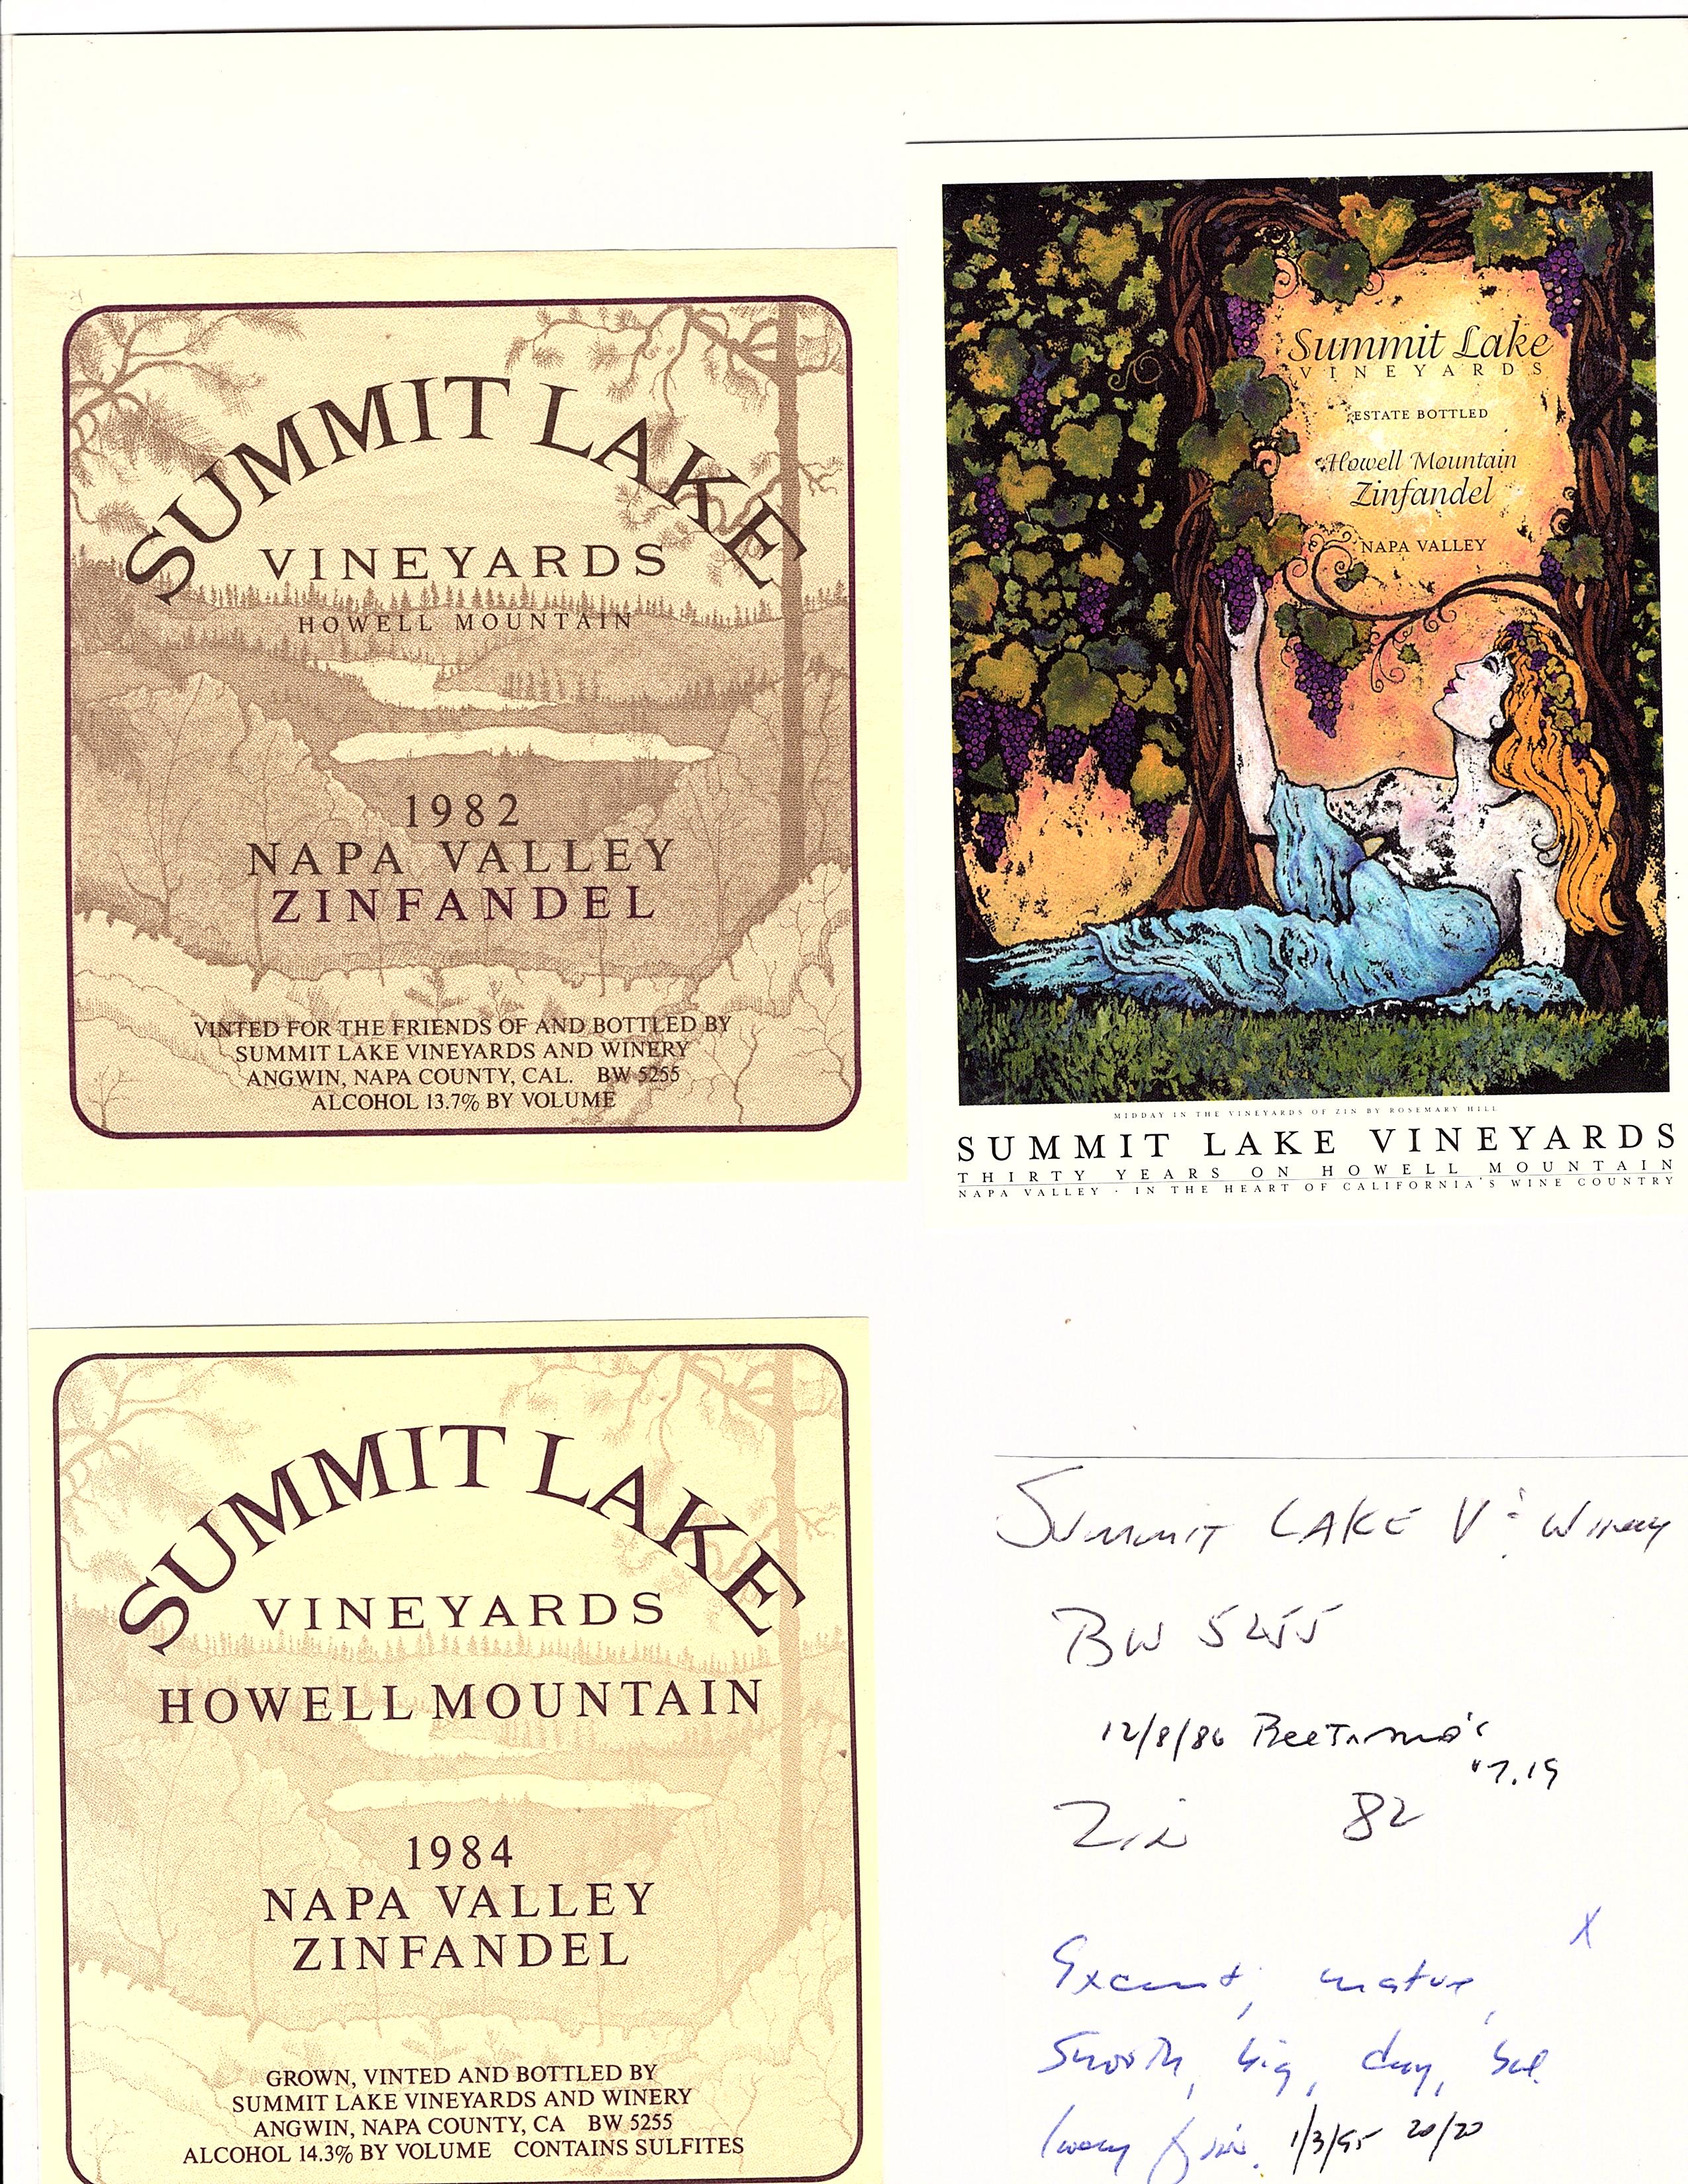 SUMMIT LAKE
VINEYARDS
HOWELL MOUNTAIN
1982
NAPA VALLEY
ZINFANDEL
VINTED FOR THE FRIENDS OF AND BOTTLED BY
SUMMIT LAKE VINEYARDS AND WINERY
ANGWIN, NAPA COUNTY, CAL. BW 5255
ALCOHOL 13.7% BY VOLUME
Summit Lake
VINEYARDS
ESTATE BOTTLED
Howell Mountain
Zinfandel
NAPA VALLEY
MIDDAY IN THE VINEYARDS OF ZIN BY ROSEMARY HILL
SUMMIT LAKE VINEYARDS
THIRTY YEARS ON HOWELL MOUNTAIN
NAPA VALLEY · IN THE HEART OF CALIFORNIA'S WINE COUNTRY
SUMMIT LAKE
VINEYARDS
HOWELL MOUNTAIN
1984
NAPA VALLEY
ZINFANDEL
GROWN, VINTED AND BOTTLED BY
SUMMIT LAKE VINEYARDS AND WINERY
ANGWIN, NAPA COUNTY, CA BW 5255
ALCOHOL 14.3% BY VOLUME CONTAINS SULFITES
SUMMIT LAKE V & Winery
BW 5255
12/8/86
7.19
Zin 82
X
smooth, big,
1/3/95 20/20